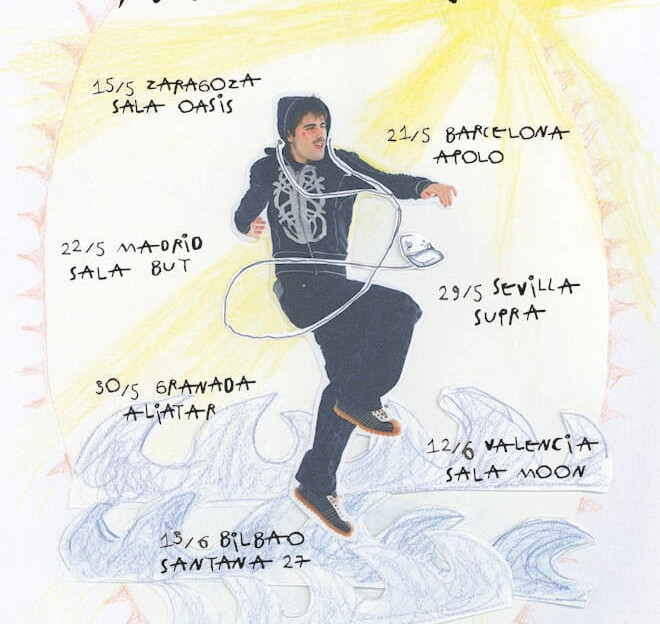 15/5 ZARAGOZA
SALA OASiS
21/5 BARCELONA
APOLO
22/5 MADRiD
SALA BUT
29/5 SEViLLA
SUPRA
30/5 GRANADA
ALiATAR
12/6 VALENCiA
SALA MOON
13/6 BiLBAO
SANTANA 27